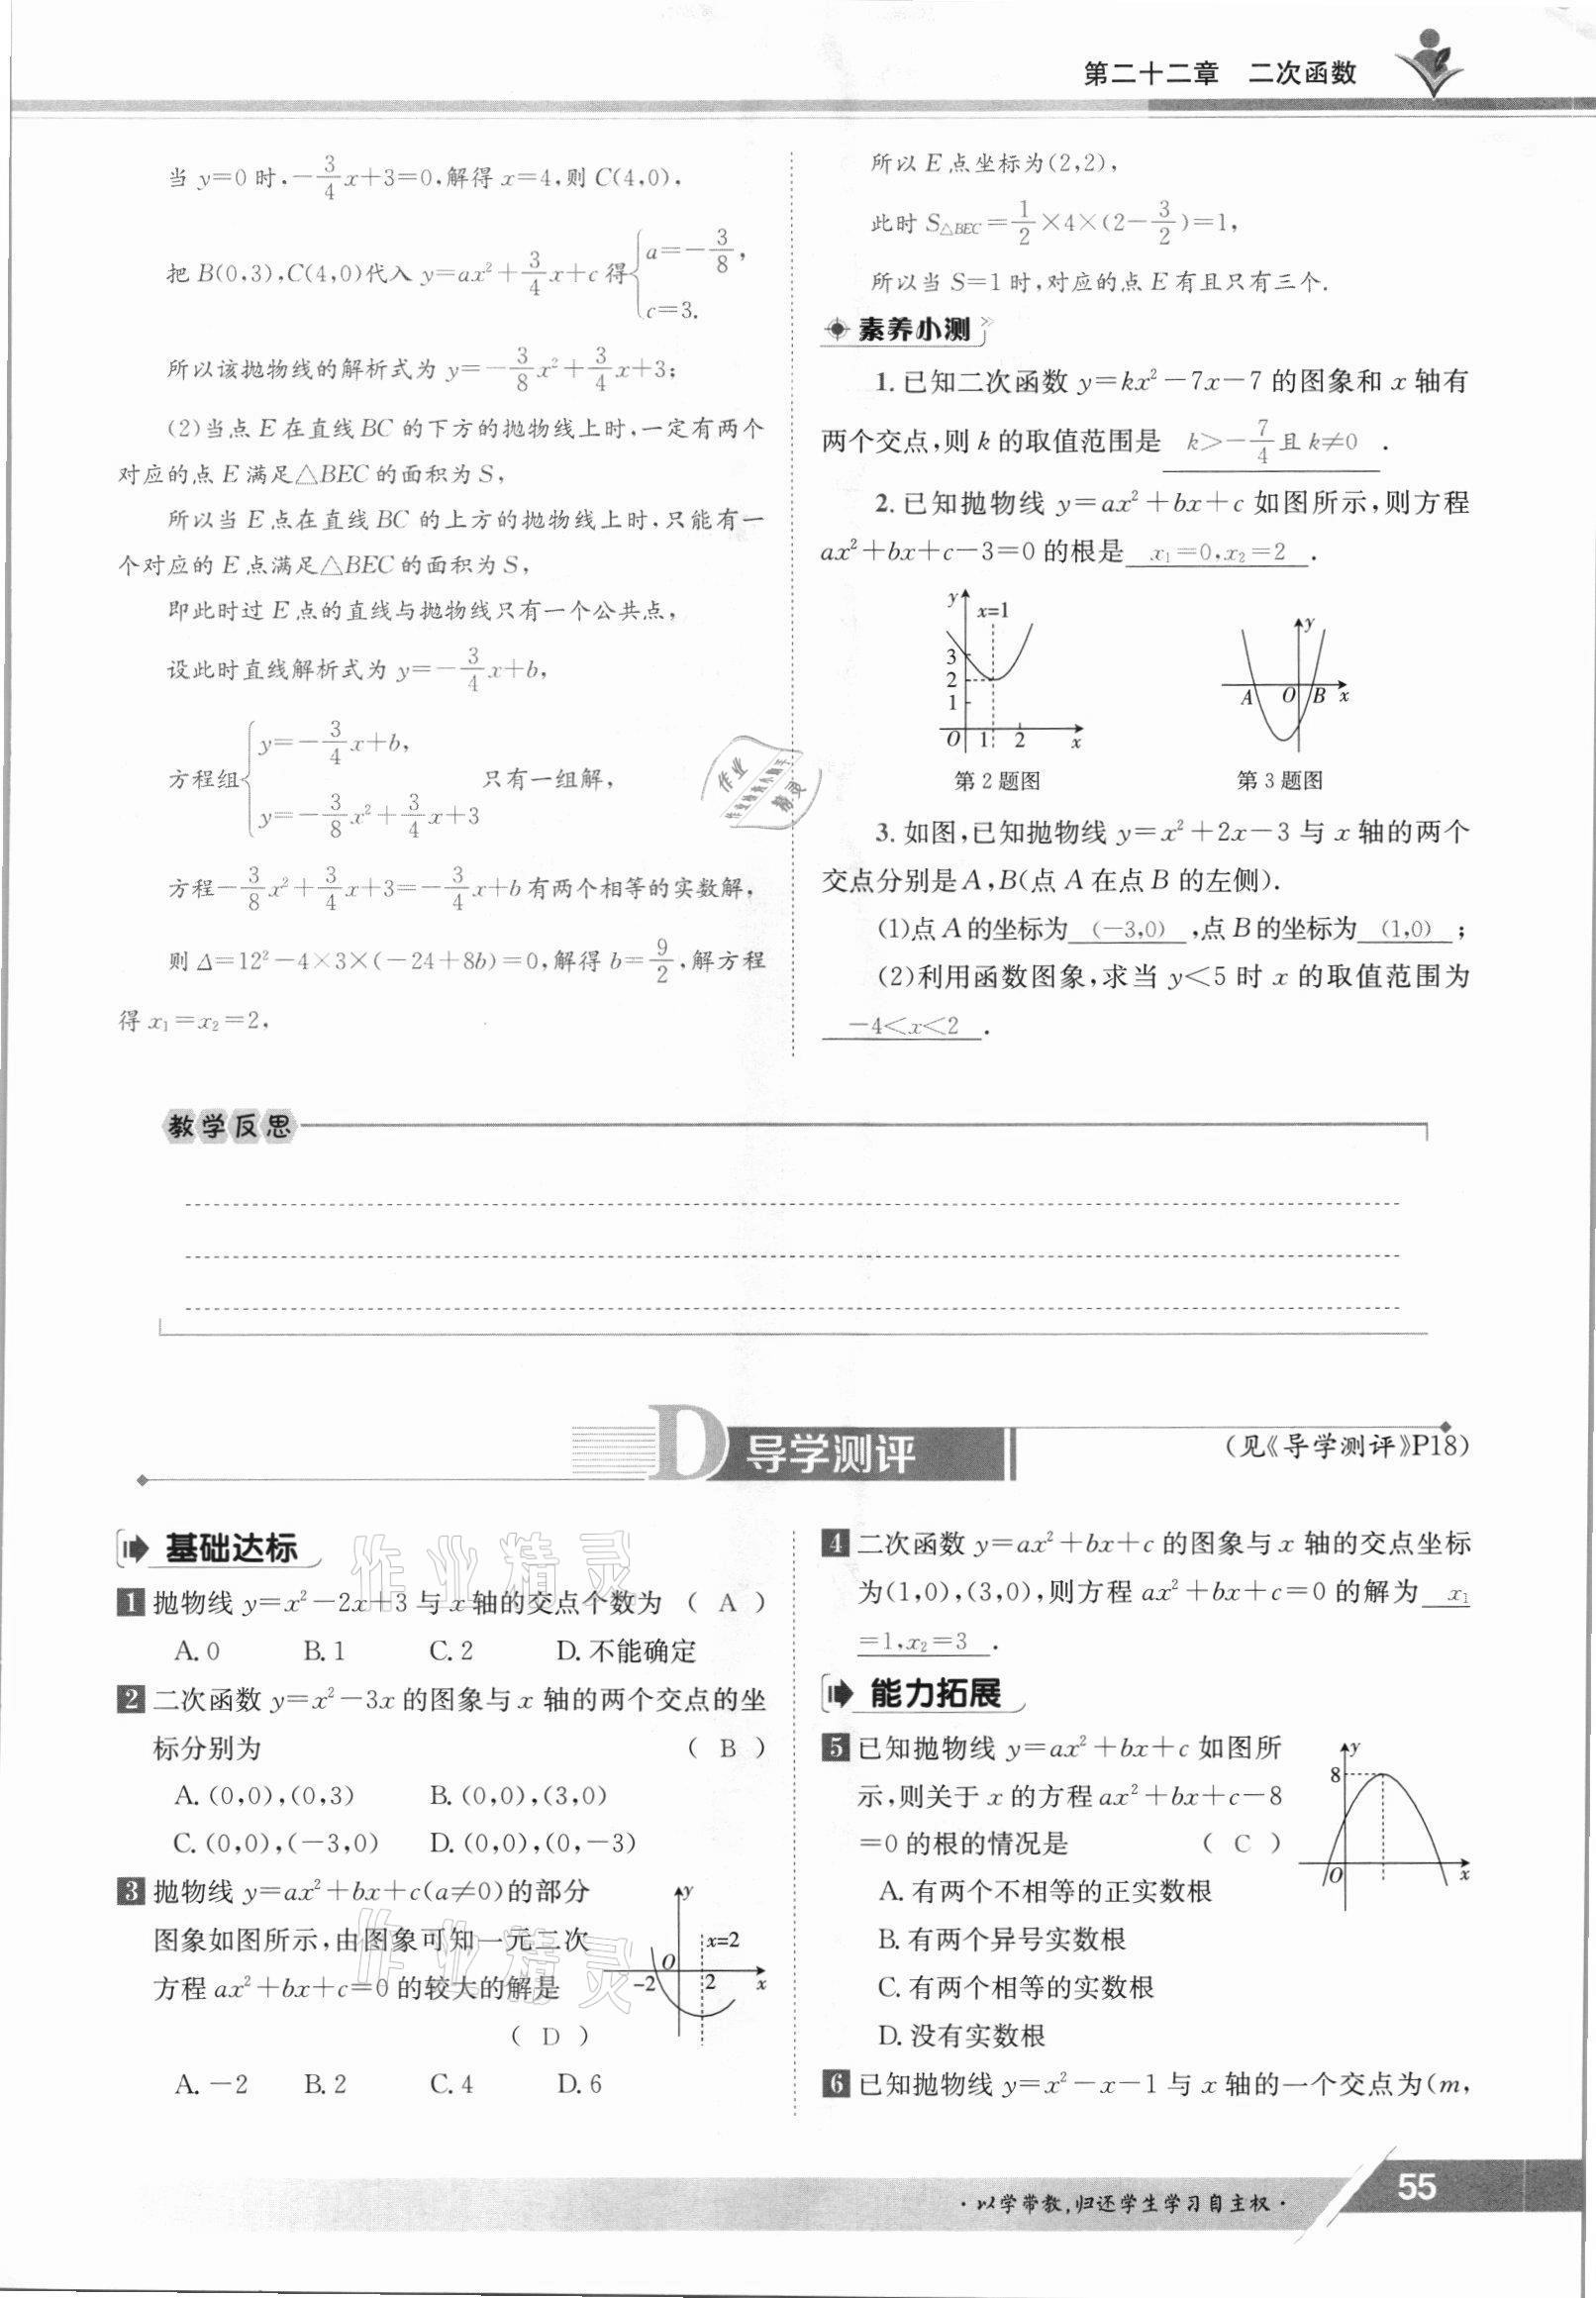 第二十二章 二次函数
当 y=0 时,-3/4x+3=0,解得 x=4,则 C(4,0),
把 B(0,3),C(4,0)代入 y=ax²+3/4x+c 得{a=-3/8, c=3.
所以该抛物线的解析式为 y=-3/8x²+3/4x+3;
(2)当点 E 在直线 BC 的下方的抛物线上时,一定有两个
对应的点 E 满足△BEC 的面积为 S,
所以当 E 点在直线 BC 的上方的抛物线上时,只能有一
个对应的 E 点满足△BEC 的面积为 S,
即此时过 E 点的直线与抛物线只有一个公共点,
设此时直线解析式为 y=-3/4x+b,
方程组{y=-3/4x+b, y=-3/8x²+3/4x+3 只有一组解,
方程-3/8x²+3/4x+3=-3/4x+b 有两个相等的实数解,
则 Δ=12²-4×3×(-24+8b)=0,解得 b=9/2,解方程
得 x₁=x₂=2,
所以 E 点坐标为(2,2),
此时 S△BEC=1/2×4×(2-3/2)=1,
所以当 S=1 时,对应的点 E 有且只有三个.
素养小测
1.已知二次函数 y=kx²-7x-7 的图象和 x 轴有
两个交点,则 k 的取值范围是 k>-7/4且 k≠0 .
2.已知抛物线 y=ax²+bx+c 如图所示,则方程
ax²+bx+c-3=0 的根是 x₁=0,x₂=2 .
y
x=1
3
2
1
O 1 2 x
第 2 题图
y
A O B x
第 3 题图
3.如图,已知抛物线 y=x²+2x-3 与 x 轴的两个
交点分别是 A,B(点 A 在点 B 的左侧).
(1)点 A 的坐标为 (-3,0) ,点 B 的坐标为 (1,0) ;
(2)利用函数图象,求当 y<5 时 x 的取值范围为
-4<x<2 .
教学反思
D 导学测评
(见《导学测评》P18)
基础达标
1 抛物线 y=x²-2x+3 与 x 轴的交点个数为 ( A )
A.0 B.1 C.2 D.不能确定
2 二次函数 y=x²-3x 的图象与 x 轴的两个交点的坐
标分别为 ( B )
A.(0,0),(0,3) B.(0,0),(3,0)
C.(0,0),(-3,0) D.(0,0),(0,-3)
3 抛物线 y=ax²+bx+c(a≠0)的部分
图象如图所示,由图象可知一元二次
方程 ax²+bx+c=0 的较大的解是
( D )
A.-2 B.2 C.4 D.6
y
x=2
O
-2 2 x
4 二次函数 y=ax²+bx+c 的图象与 x 轴的交点坐标
为(1,0),(3,0),则方程 ax²+bx+c=0 的解为 x₁
=1,x₂=3 .
能力拓展
5 已知抛物线 y=ax²+bx+c 如图所
示,则关于 x 的方程 ax²+bx+c-8
=0 的根的情况是 ( C )
A.有两个不相等的正实数根
B.有两个异号实数根
C.有两个相等的实数根
D.没有实数根
y
8
O x
6 已知抛物线 y=x²-x-1 与 x 轴的一个交点为(m,
作业精灵
作业精灵
作业
精灵
·以学带教,归还学生学习自主权·
55